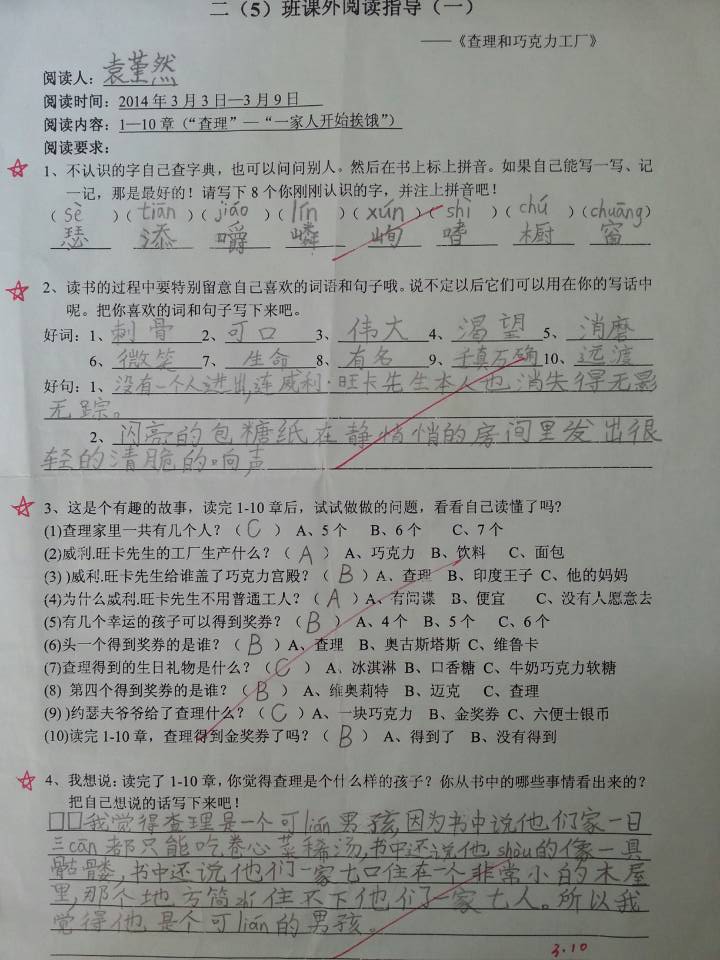 二（5）班课外阅读指导（一）
——《查理和巧克力工厂》
阅读人：袁堇然
阅读时间：2014年3月3日—3月9日
阅读内容：1—10章（“查理”—“一家人开始挨饿”）
阅读要求：
1、不认识的字自己查字典，也可以问问别人。然后在书上标上拼音。如果自己能写一写、记
一记，那是最好的！请写下8个你刚刚认识的字，并注上拼音吧！
（sè）（tiān）（jiáo）（lín）（xún）（shì）（chú）（chuāng）
瑟 添 嚼 嶙 峋 嗜 橱 窗
2、读书的过程中要特别留意自己喜欢的词语和句子哦。说不定以后它们可以用在你的写话中
呢。把你喜欢的词和句子写下来吧。
好词：1、刺骨 2、可口 3、伟大 4、渴望 5、消磨
6、微笑 7、生命 8、有名 9、千真万确 10、远渡
好句：1、没有一个人进出,连威利·旺卡先生本人也消失得无影
无踪。
2、闪亮的包糖纸在静悄悄的房间里发出很
轻的清脆的响声
3、这是个有趣的故事，读完1-10章后，试试做做的问题，看看自己读懂了吗？
(1)查理家里一共有几个人？（C） A、5个 B、6个 C、7个
(2)威利.旺卡先生的工厂生产什么？（A） A、巧克力 B、饮料 C、面包
(3) )威利.旺卡先生给谁盖了巧克力宫殿？（B）A、查理 B、印度王子 C、他的妈妈
(4)为什么威利.旺卡先生不用普通工人？（A）A、有间谍 B、便宜 C、没有人愿意去
(5)有几个幸运的孩子可以得到奖券？（B） A、4个 B、5个 C、6个
(6)头一个得到奖券的是谁？（B）A、查理 B、奥古斯塔斯 C、维鲁卡
(7)查理得到的生日礼物是什么？（C） A、冰淇淋 B、口香糖 C、牛奶巧克力软糖
(8) 第四个得到奖券的是谁？（B） A、维奥莉特 B、迈克 C、查理
(9) )约瑟夫爷爷给了查理什么？（C）A、一块巧克力 B、金奖券 C、六便士银币
(10)读完1-10章，查理得到金奖券了吗？（B） A、得到了 B、没有得到
4、我想说：读完了1-10章，你觉得查理是个什么样的孩子？你从书中的哪些事情看出来的？
把自己想说的话写下来吧！
□□我觉得查理是一个可lián男孩,因为书中说他们家一日
三cān都只能吃卷心菜稀汤,书中还说他shòu的像一具
骷髅,书中还说他们一家七口住在一个非常小的木屋
里,那个地方简zhí住不下他们一家七人。所以我
觉得他是个可lián的男孩。
3.10